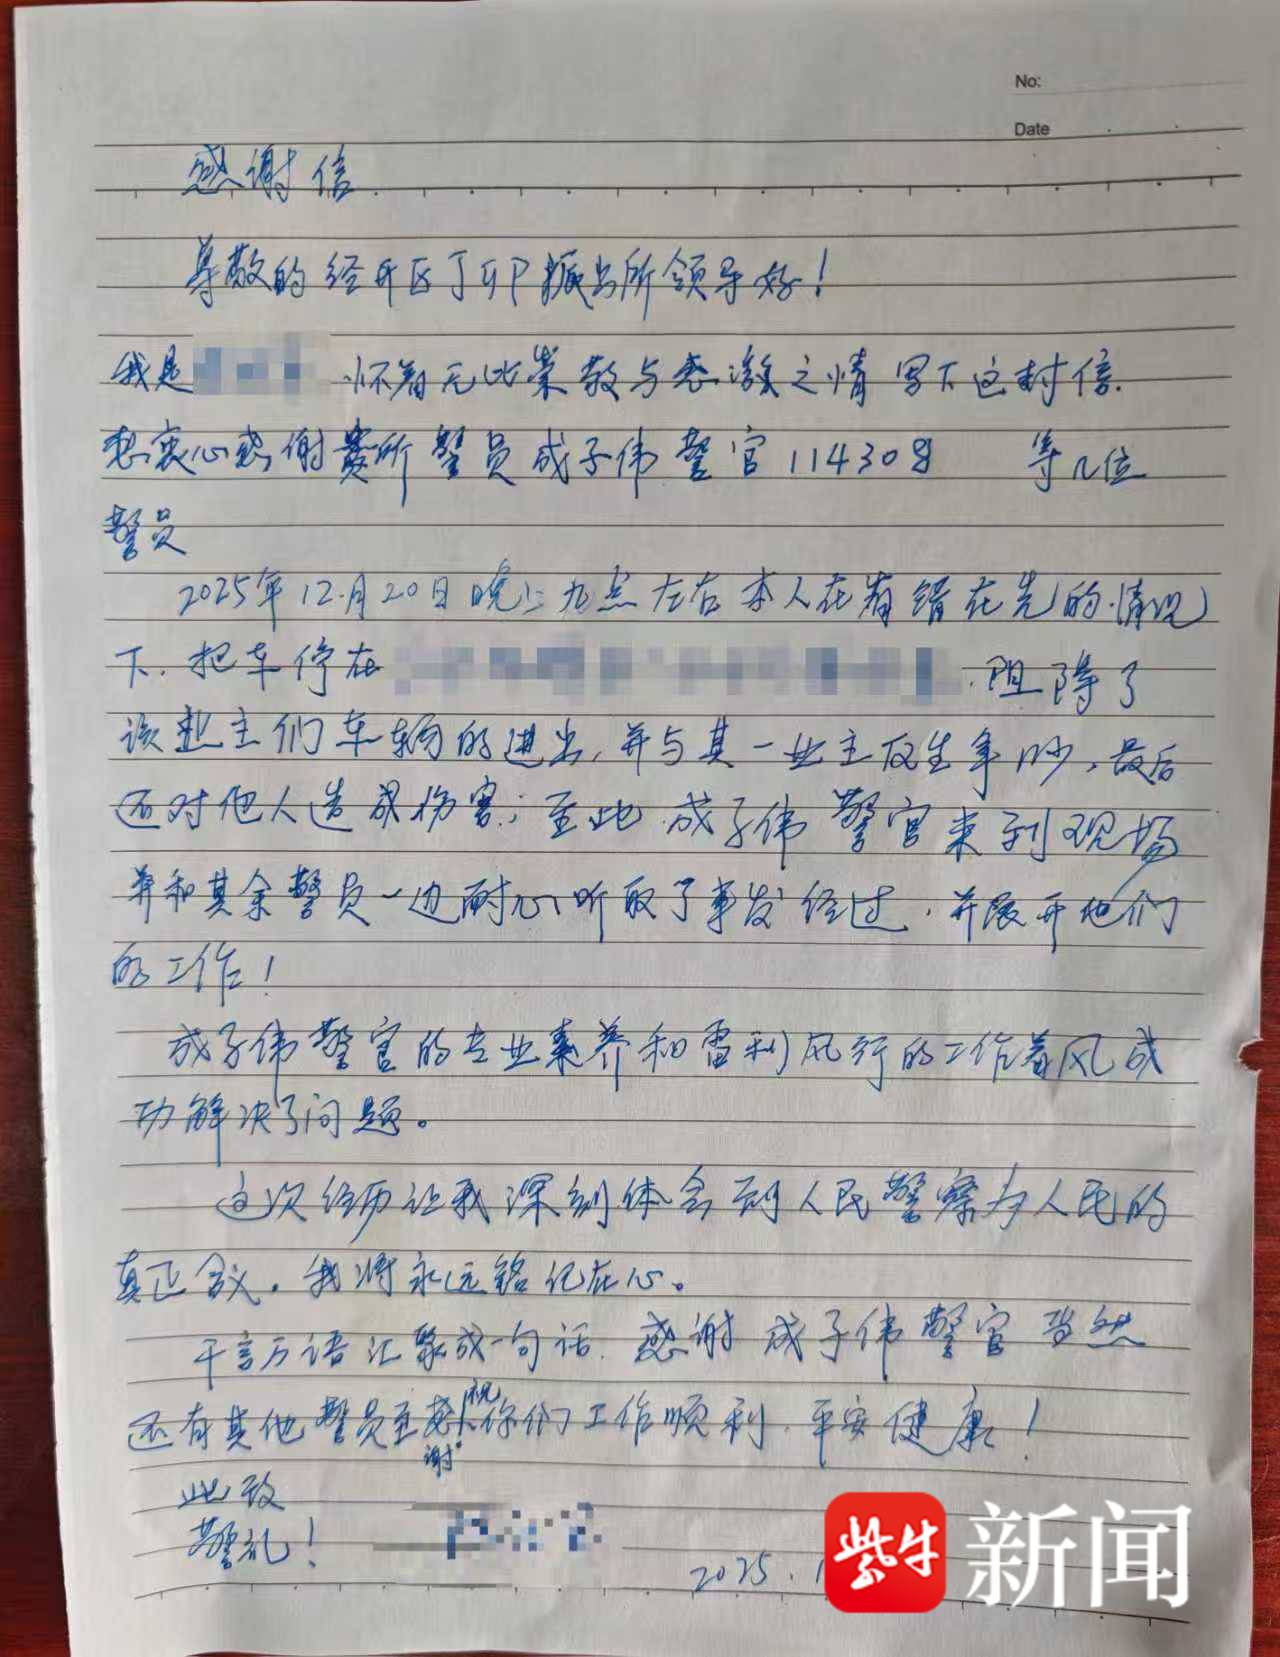 No:
Date
感谢信.
尊敬的经开区丁卯派出所领导好！
我是 怀着无比崇敬与感激之情写下这封信.
想衷心感谢贵所警员成子伟警官114308 等几位
警员
2025年12月20日晚上九点左右本人在有错在先的情况
下.把车停在 .阻碍了
该业主们车辆的进出,并与其一业主发生争吵,最后
还对他人造成伤害;至此.成子伟警官来到现场
并和其余警员一边耐心听取了事发经过.并展开他们
的工作!
成子伟警官的专业素养和雷利风行的工作作风成
功解决了问题。
这次经历让我深刻体会到人民警察为人民的
真正含义.我将永远铭记在心。
千言万语汇聚成一句话.感谢成子伟警官当然
还有其他警员至感谢.祝你们工作顺利.平安健康!
此致
警礼!
2025.1
紫牛新闻